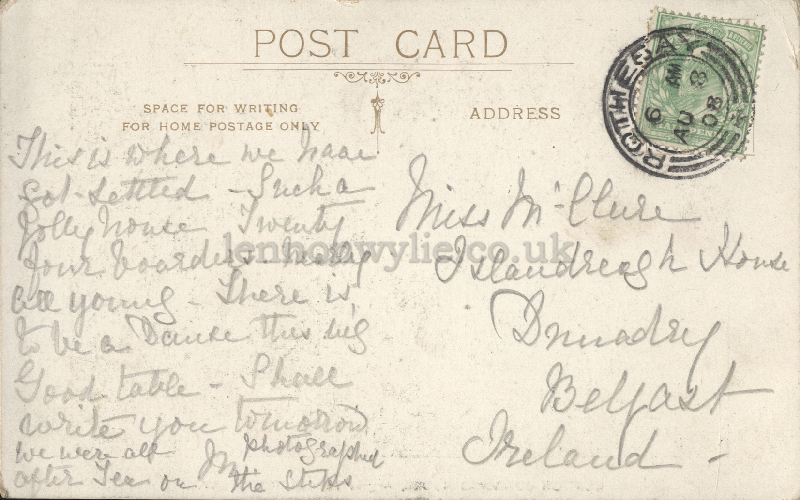 POST CARD
SPACE FOR WRITING
FOR HOME POSTAGE ONLY
ADDRESS
ROTHESAY
6 AM
AU 8
08
This is where we have
got settled - Such a
Jolly house Twenty
four boarders nearly
all young - There is
to be a Dance this
Good table - Shall
write you tomorrow
we were all photographed
after Tea on the Steps
M
Miss McClure
Islandreagh House
Dunadry
Belfast
Ireland -
lenhonwylie.co.uk